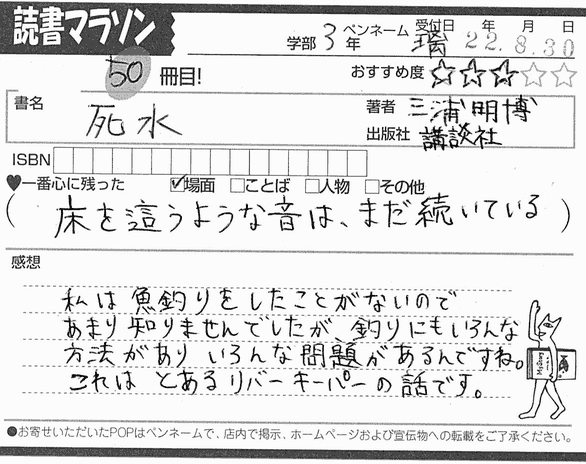 読書マラソン
学部 3年 ペンネーム 瑞 受付日 年 月 日 22.8.30
50 冊目! おすすめ度 ★★★☆☆
書名 死水 著者 三浦明博
出版社 講談社
ISBN
♥一番心に残った ☑場面 □ことば □人物 □その他
( 床を這うような音は、まだ続いている )
感想
私は魚釣りをしたことがないので
あまり知りませんでしたが、釣りにもいろんな
方法があり いろんな問題があるんですね。
これは とあるリバーキーパーの話です。
●お寄せいただいたPOPはペンネームで、店内で掲示、ホームページおよび宣伝物への転載をご了承ください。